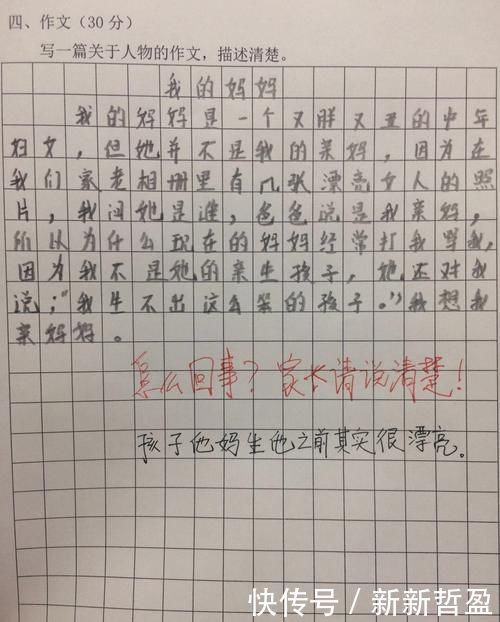 四、作文（30分）
写一篇关于人物的作文，描述清楚。
我的妈妈
我的妈妈是一个又胖又丑的中年
妇女，但她并不是我的亲妈，因为在
我们家老相册里有几张漂亮女人的照
片，我问她是谁，爸爸说是我亲妈，
所以为什么现在的妈妈经常打我骂我，
因为我不是她的亲生孩子，她还对我
说；“我生不出这么笨的孩子。”我想我
亲妈妈。
怎么回事？家长请说清楚！
孩子他妈生他之前其实很漂亮。
快传号 / 新新哲盈